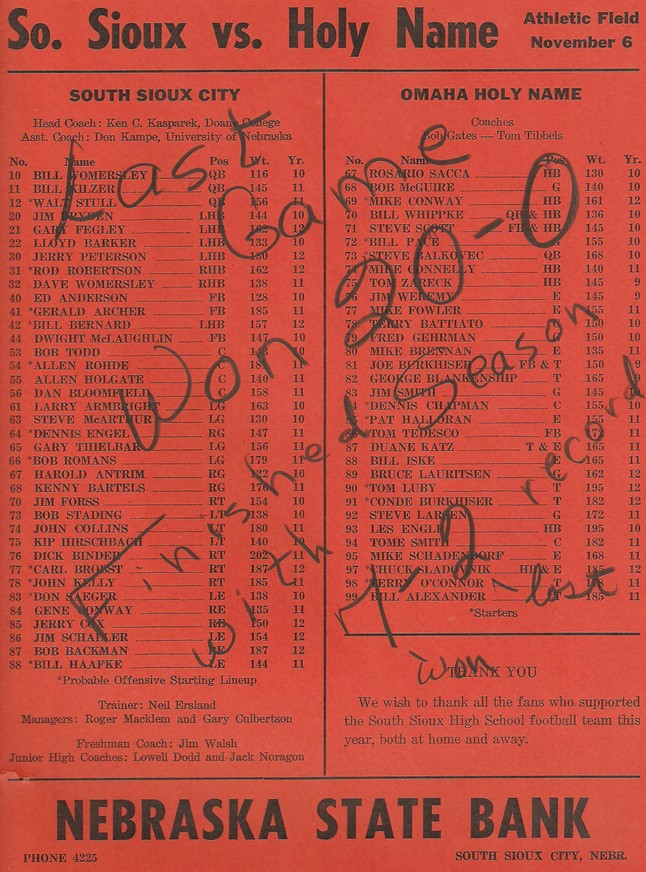 So. Sioux vs. Holy Name
Athletic Field
November 6
SOUTH SIOUX CITY
Head Coach: Ken C. Kasparek, Doane College
Asst. Coach: Don Kampe, University of Nebraska
No. Name Pos Wt. Yr.
10 BILL WOMERSLEY QB 116 10
11 BILL KILZER QB 145 11
12 *WALT STULL QB 156 11
20 JIM BRYDEN LHB 144 10
21 GARY FEGLEY LHB 12
22 LLOYD BARKER LHB 133 10
30 JERRY PETERSON LHB 130 12
31 *ROD ROBERTSON RHB 162 12
32 DAVE WOMERSLEY RHB 138 11
40 ED ANDERSON FB 128 10
41 *GERALD ARCHER FB 185 11
42 *BILL BERNARD LHB 157 12
44 DWIGHT McLAUGHLIN FB 147 11
53 BOB TODD C 10
54 *ALLEN ROHDE C 181 11
55 ALLEN HOLGATE C 140 11
56 DAN BLOOMFIELD C 158 11
61 LARRY ARMBRIGHT LG 163 10
63 STEVE McARTHUR LG 130 10
64 *DENNIS ENGEL RG 147 11
65 GARY THIELBAR LG 156 11
66 *BOB ROMANS LG 179 11
67 HAROLD ANTRIM RG 122 10
68 KENNY BARTELS RG 176 11
70 JIM FORSS RT 154 10
73 BOB STADING LT 138 10
74 JOHN COLLINS LT 180 11
75 KIP HIRSCHBACH LT 140 10
76 DICK BINDER RT 202 11
77 *CARL BROBST RT 187 12
78 *JOHN KELLY RT 185 11
83 *DON STEGER LE 138 10
84 GENE CONWAY RE 135 11
85 JERRY COX RE 150 12
86 JIM SCHALLER LE 154 12
87 BOB BACKMAN RE 187 12
88 *BILL HAAFKE LE 144 11
*Probable Offensive Starting Lineup
Trainer: Neil Ersland
Managers: Roger Macklem and Gary Culbertson
Freshman Coach: Jim Walsh
Junior High Coaches: Lowell Dodd and Jack Noragon
OMAHA HOLY NAME
Coaches
Bob Gates — Tom Tibbels
No. Name Pos. Wt. Yr.
67 ROSARIO SACCA HB 130 10
68 BOB McGUIRE G 140 10
69 *MIKE CONWAY HB 161 12
70 BILL WHIPPKE QB & HB 136 10
71 STEVE SCOTT FB & HB 145 10
72 *BILL PACE 155 10
73 *STEVE BALKOVEC QB 168 10
74 *MIKE CONNELLY HB 140 11
75 TOM ZARECK HB 145 9
76 JIM WEREMY E 145 9
77 MIKE FOWLER E 155 11
78 TERRY BATTIATO 150 10
79 FRED GEHRMAN 150 10
80 MIKE BRENNAN E 135 11
81 JOE BURKHISER FB & T 150 9
82 GEORGE BLANKENSHIP T 165 9
83 JIM SMITH G 145
84 *DENNIS CHAPMAN C 155 10
85 *PAT HALLORAN E 155 11
86 TOM TEDESCO FB 11
87 DUANE KATZ T & E 165 11
88 BILL ISKE 165 11
89 BRUCE LAURITSEN C 162 12
90 *TOM LUBY T 195 12
91 *CONDE BURKHISER T 182 12
92 STEVE LARSEN G 172 11
93 LES ENGLE HB 195 10
94 TOME SMITH C 182 11
95 MIKE SCHADENDORF E 168 11
97 *CHUCK SLADOVNIK HB & E 185 12
98 *JERRY O'CONNOR T 11
99 BILL ALEXANDER T 185 11
*Starters
THANK YOU
We wish to thank all the fans who supported
the South Sioux High School football team this
year, both at home and away.
Last Game
Won 20-0
Finished Season
with 7-2 record
won lost
NEBRASKA STATE BANK
PHONE 4225
SOUTH SIOUX CITY, NEBR.